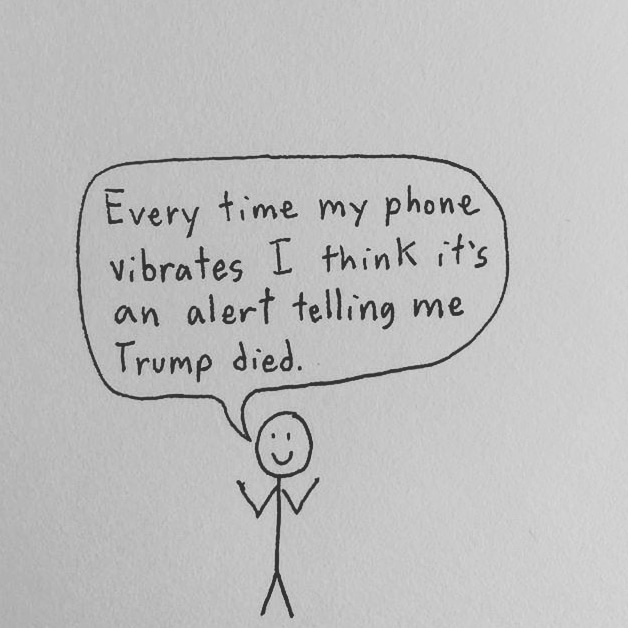 Every time my phone
vibrates I think it's
an alert telling me
Trump died.